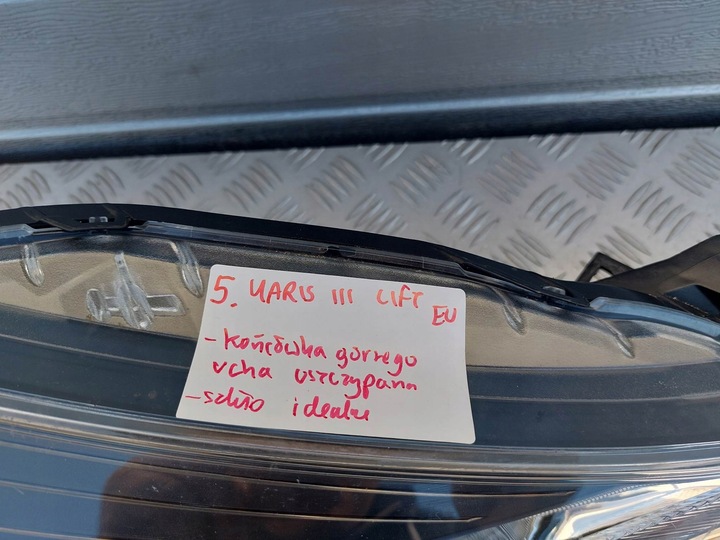 5. YARIS III LIFT EU
- końcówka górnego
ucha uszczypana
- szkło idealne